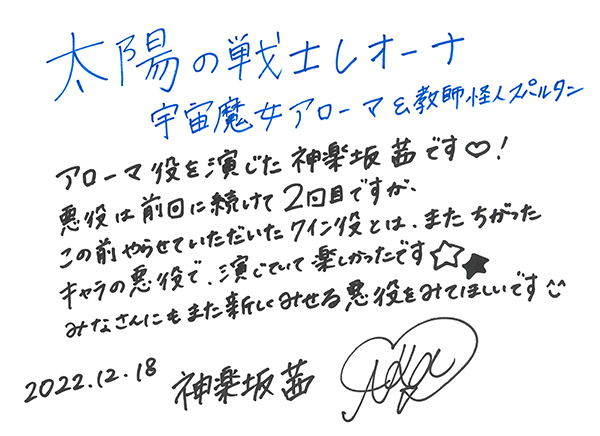 太陽の戦士レオーナ
宇宙魔女アローマ&教師怪人スパルタン
アローマ役を演じた神楽坂茜です♡!
悪役は前回に続けて2回目ですが、
この前やらせていただいたクイン役とは、またちがった
キャラの悪役で、演じていて楽しかったです☆★
みなさんにもまた新しくみせる悪役をみてほしいです
2022.12.18 神楽坂茜